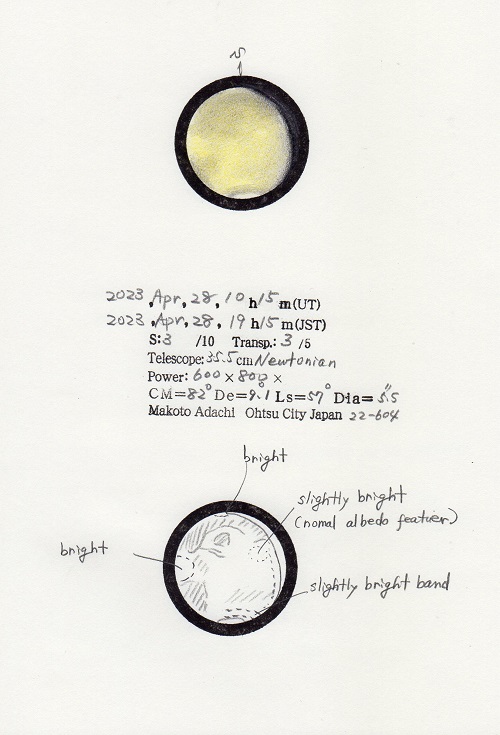 N
2023 ,Apr, 28, 10 h 15 m(UT)
2023 ,Apr, 28, 19 h 15 m(JST)
S:3 /10 Transp.: 3 /5
Telescope: 35.5 cm Newtonian
Power: 600 × 800 ×
CM=82° De=9.1° Ls=57° Dia= 5.5"
Makoto Adachi Ohtsu City Japan 22-604
bright
slightly bright
(nomal albedo featuer)
bright
slightly bright band